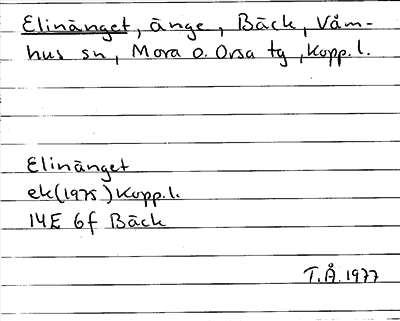 Elinänget, änge, Bäck, Våm-
hus sn, Mora o. Orsa tg, Kopp. l.
Elinänget
ek (1975) Kopp. l.
14E 6f Bäck
T.Å. 1977